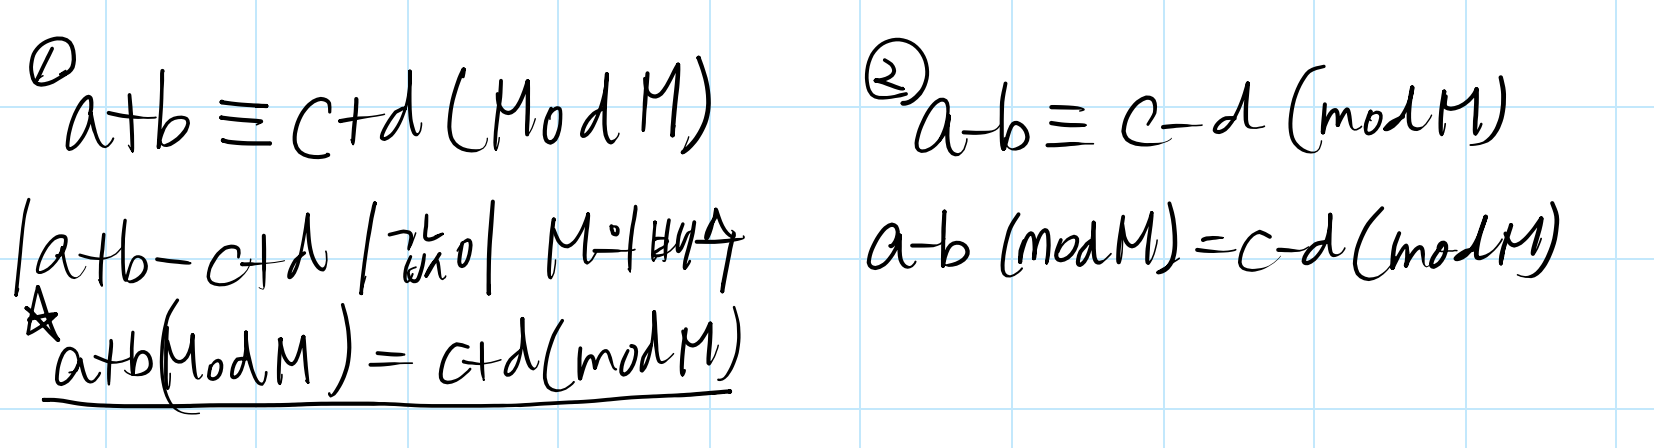 ① a+b ≡ c+d (Mod M)
|a+b-c+d| 값이 M의 배수
☆ a+b(Mod M) = c+d(mod M)
② a-b ≡ c-d (mod M)
a-b (mod M) = c-d (mod M)